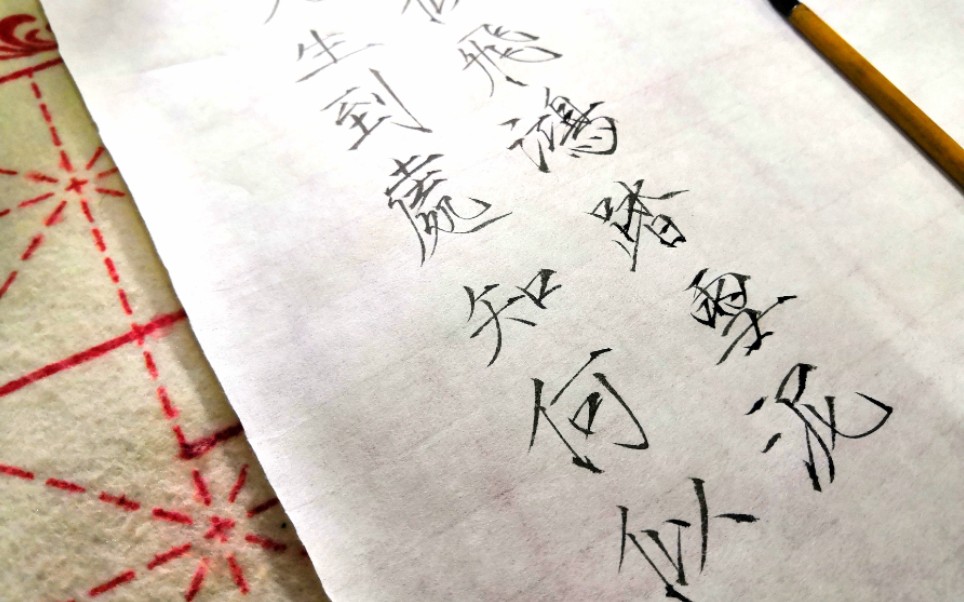 生到處知何似
飛鴻踏雪泥